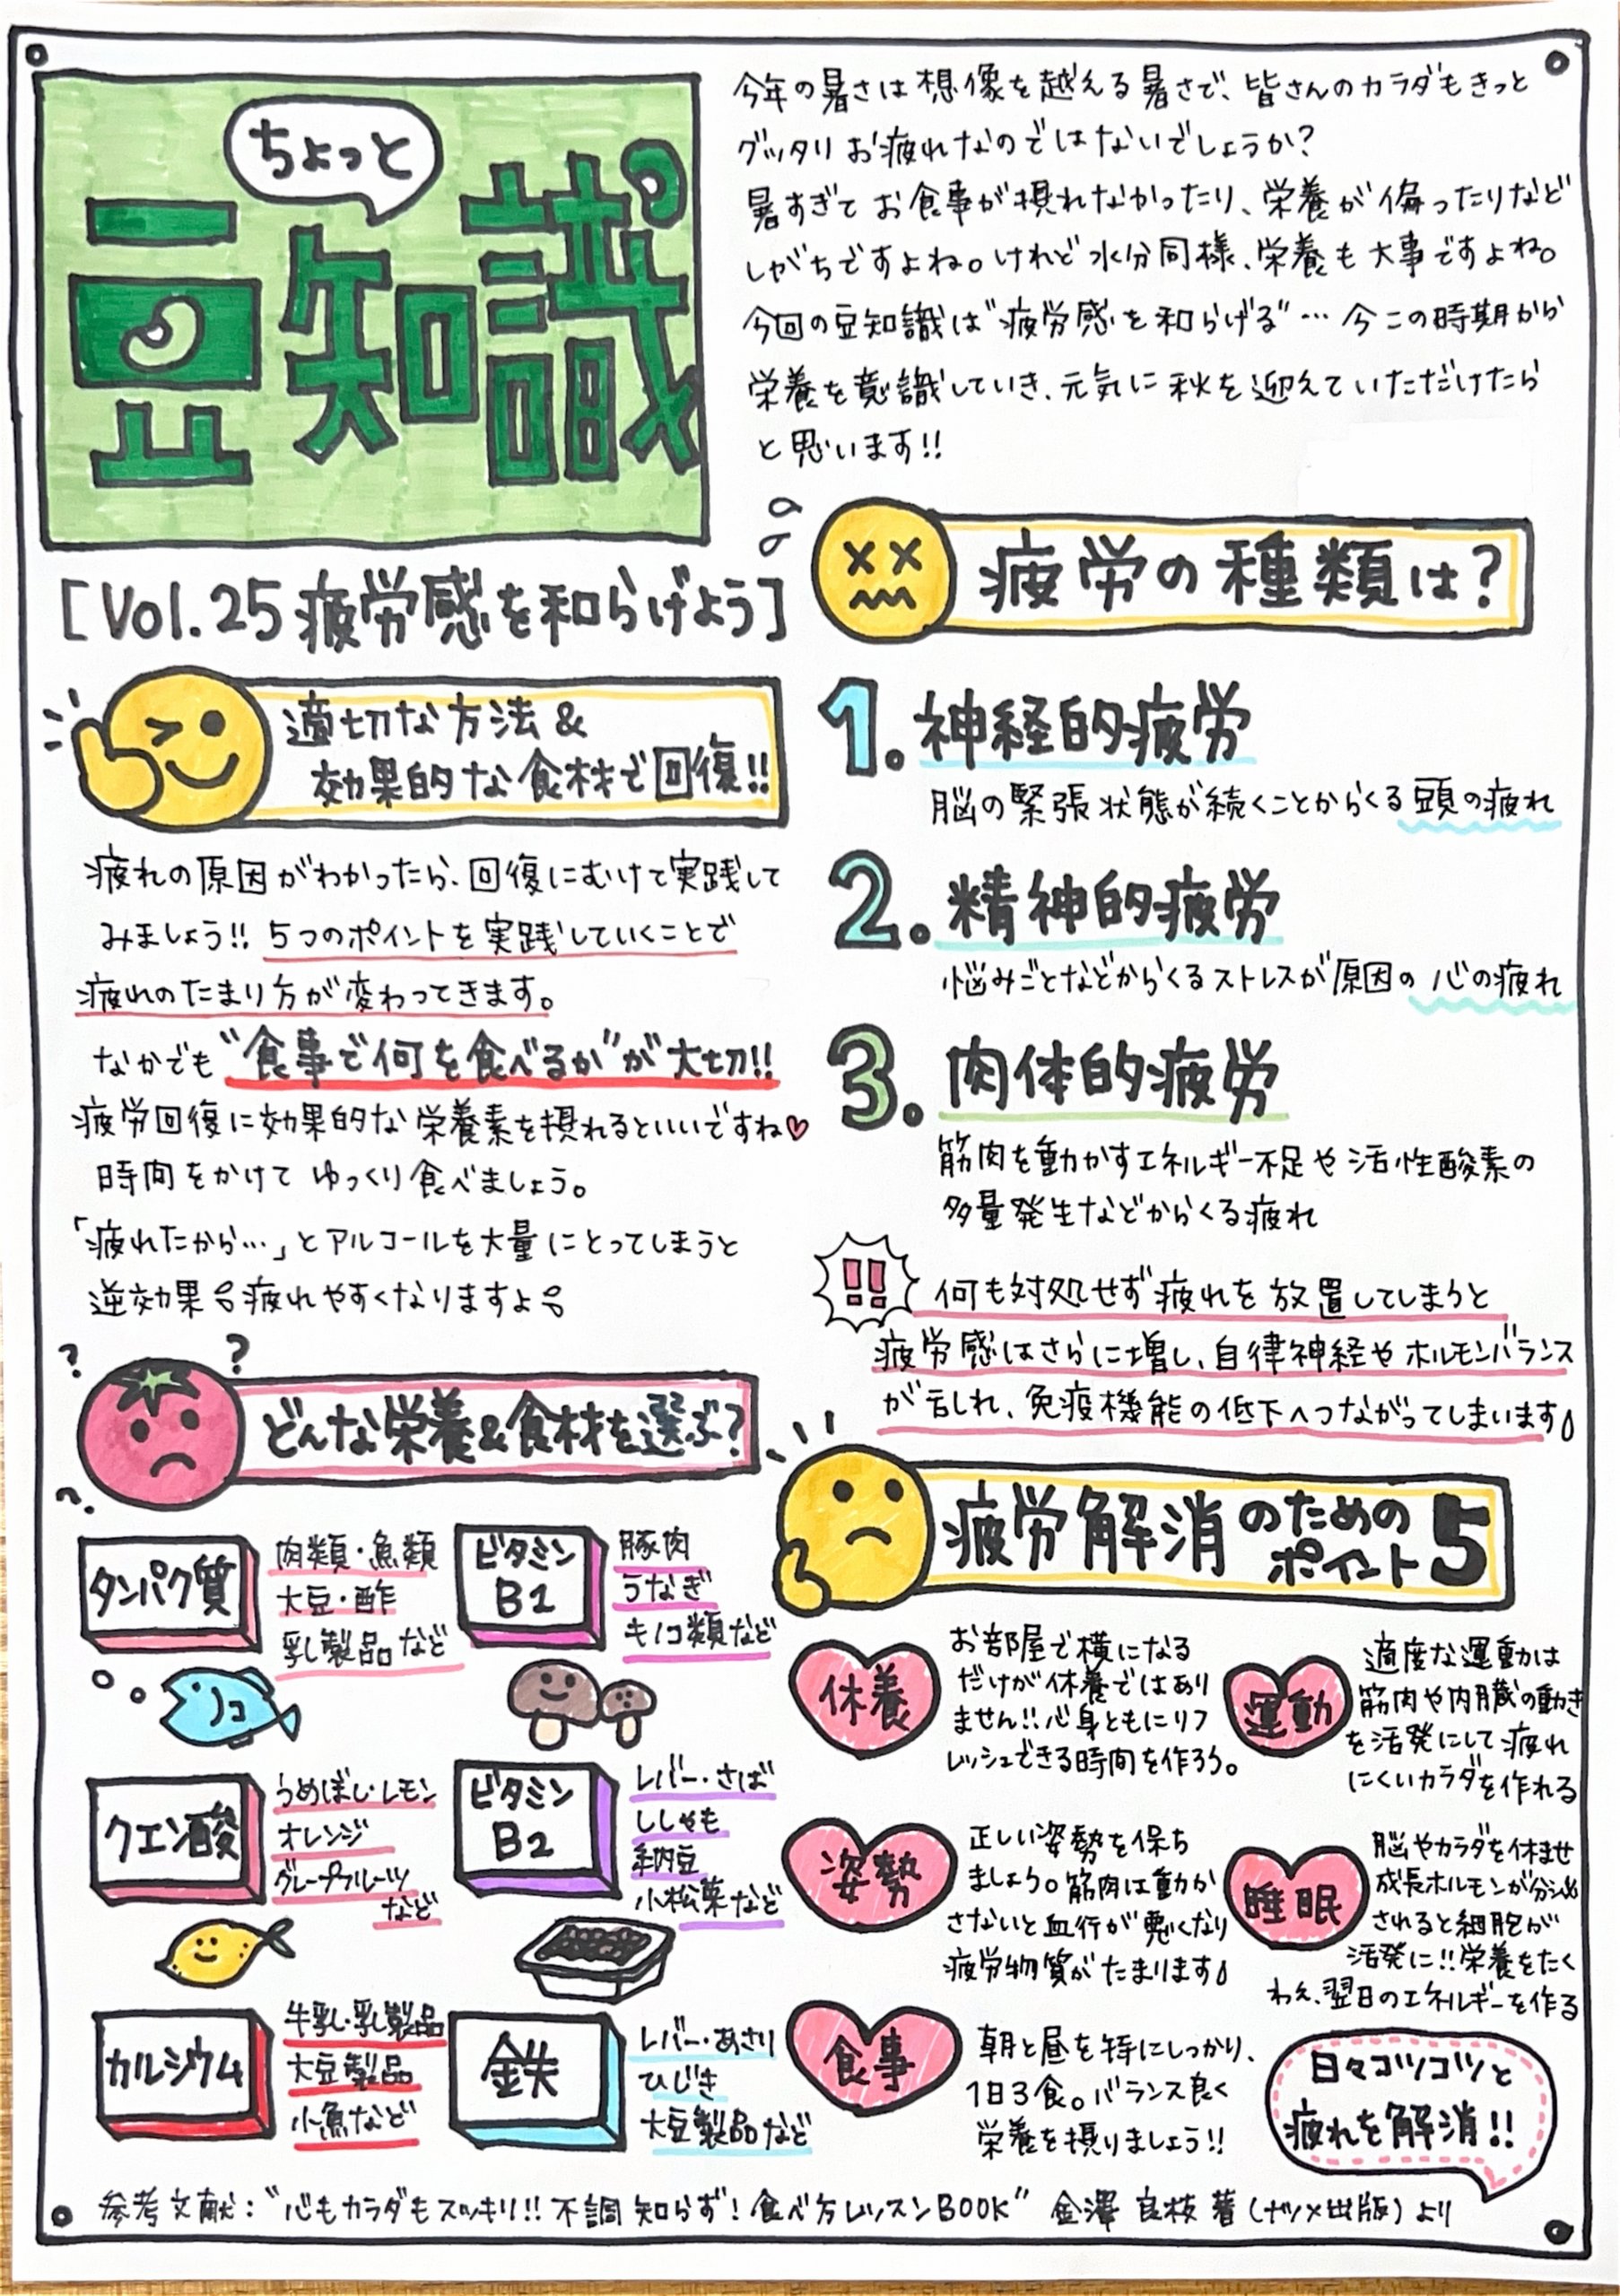 ちょっと
豆知識
[Vol.25 疲労感を和らげよう]
今年の暑さは想像を越える暑さで、皆さんのカラダもきっと
グッタリお疲れなのではないでしょうか？
暑すぎてお食事が摂れなかったり、栄養が偏ったりなど
しがちですよね。けれど水分同様、栄養も大事ですよね。
今回の豆知識は“疲労感を和らげる”…今この時期から
栄養を意識していき、元気に秋を迎えていただけたら
と思います!!
疲労の種類は？
1. 神経的疲労
脳の緊張状態が続くことからくる頭の疲れ
2. 精神的疲労
悩みごとなどからくるストレスが原因の心の疲れ
3. 肉体的疲労
筋肉を動かすエネルギー不足や活性酸素の
多量発生などからくる疲れ
!! 何も対処せず疲れを放置してしまうと
疲労感はさらに増し、自律神経やホルモンバランス
が乱れ、免疫機能の低下へつながってしまいます
適切な方法＆
効果的な食材で回復!!
疲れの原因がわかったら、回復にむけて実践して
みましょう!! 5つのポイントを実践していくことで
疲れのたまり方が変わってきます。
なかでも“食事で何を食べるか”が大切!!
疲労回復に効果的な栄養素を摂れるといいですね♡
時間をかけてゆっくり食べましょう。
「疲れたから…」とアルコールを大量にとってしまうと
逆効果 疲れやすくなりますよ
? ? ?
どんな栄養&食材を選ぶ？
タンパク質
肉類・魚類
大豆・酢
乳製品など
ビタミン
B1
豚肉
うなぎ
キノコ類など
クエン酸
うめぼし・レモン
オレンジ
グレープフルーツ
など
ビタミン
B2
レバー・さば
ししゃも
納豆
小松菜など
カルシウム
牛乳・乳製品
大豆製品
小魚など
鉄
レバー・あさり
ひじき
大豆製品など
疲労解消のための
ポイント5
休養
お部屋で横になる
だけが休養ではあり
ません!!心身ともにリフ
レッシュできる時間を作ろう。
運動
適度な運動は
筋肉や内臓の動き
を活発にして疲れ
にくいカラダを作れる
姿勢
正しい姿勢を保ち
ましょう。筋肉は動か
さないと血行が悪くなり
疲労物質がたまります
睡眠
脳やカラダを休ませ
成長ホルモンが分泌
されると細胞が
活発に!!栄養をたく
わえ、翌日のエネルギーを作る
食事
朝と昼を特にしっかり、
1日3食。バランス良く
栄養を摂りましょう!!
日々コツコツと
疲れを解消!!
参考文献：“心もカラダもスッキリ!!不調知らず！食べ方レッスンBOOK” 金澤良枝著(ナツメ出版)より